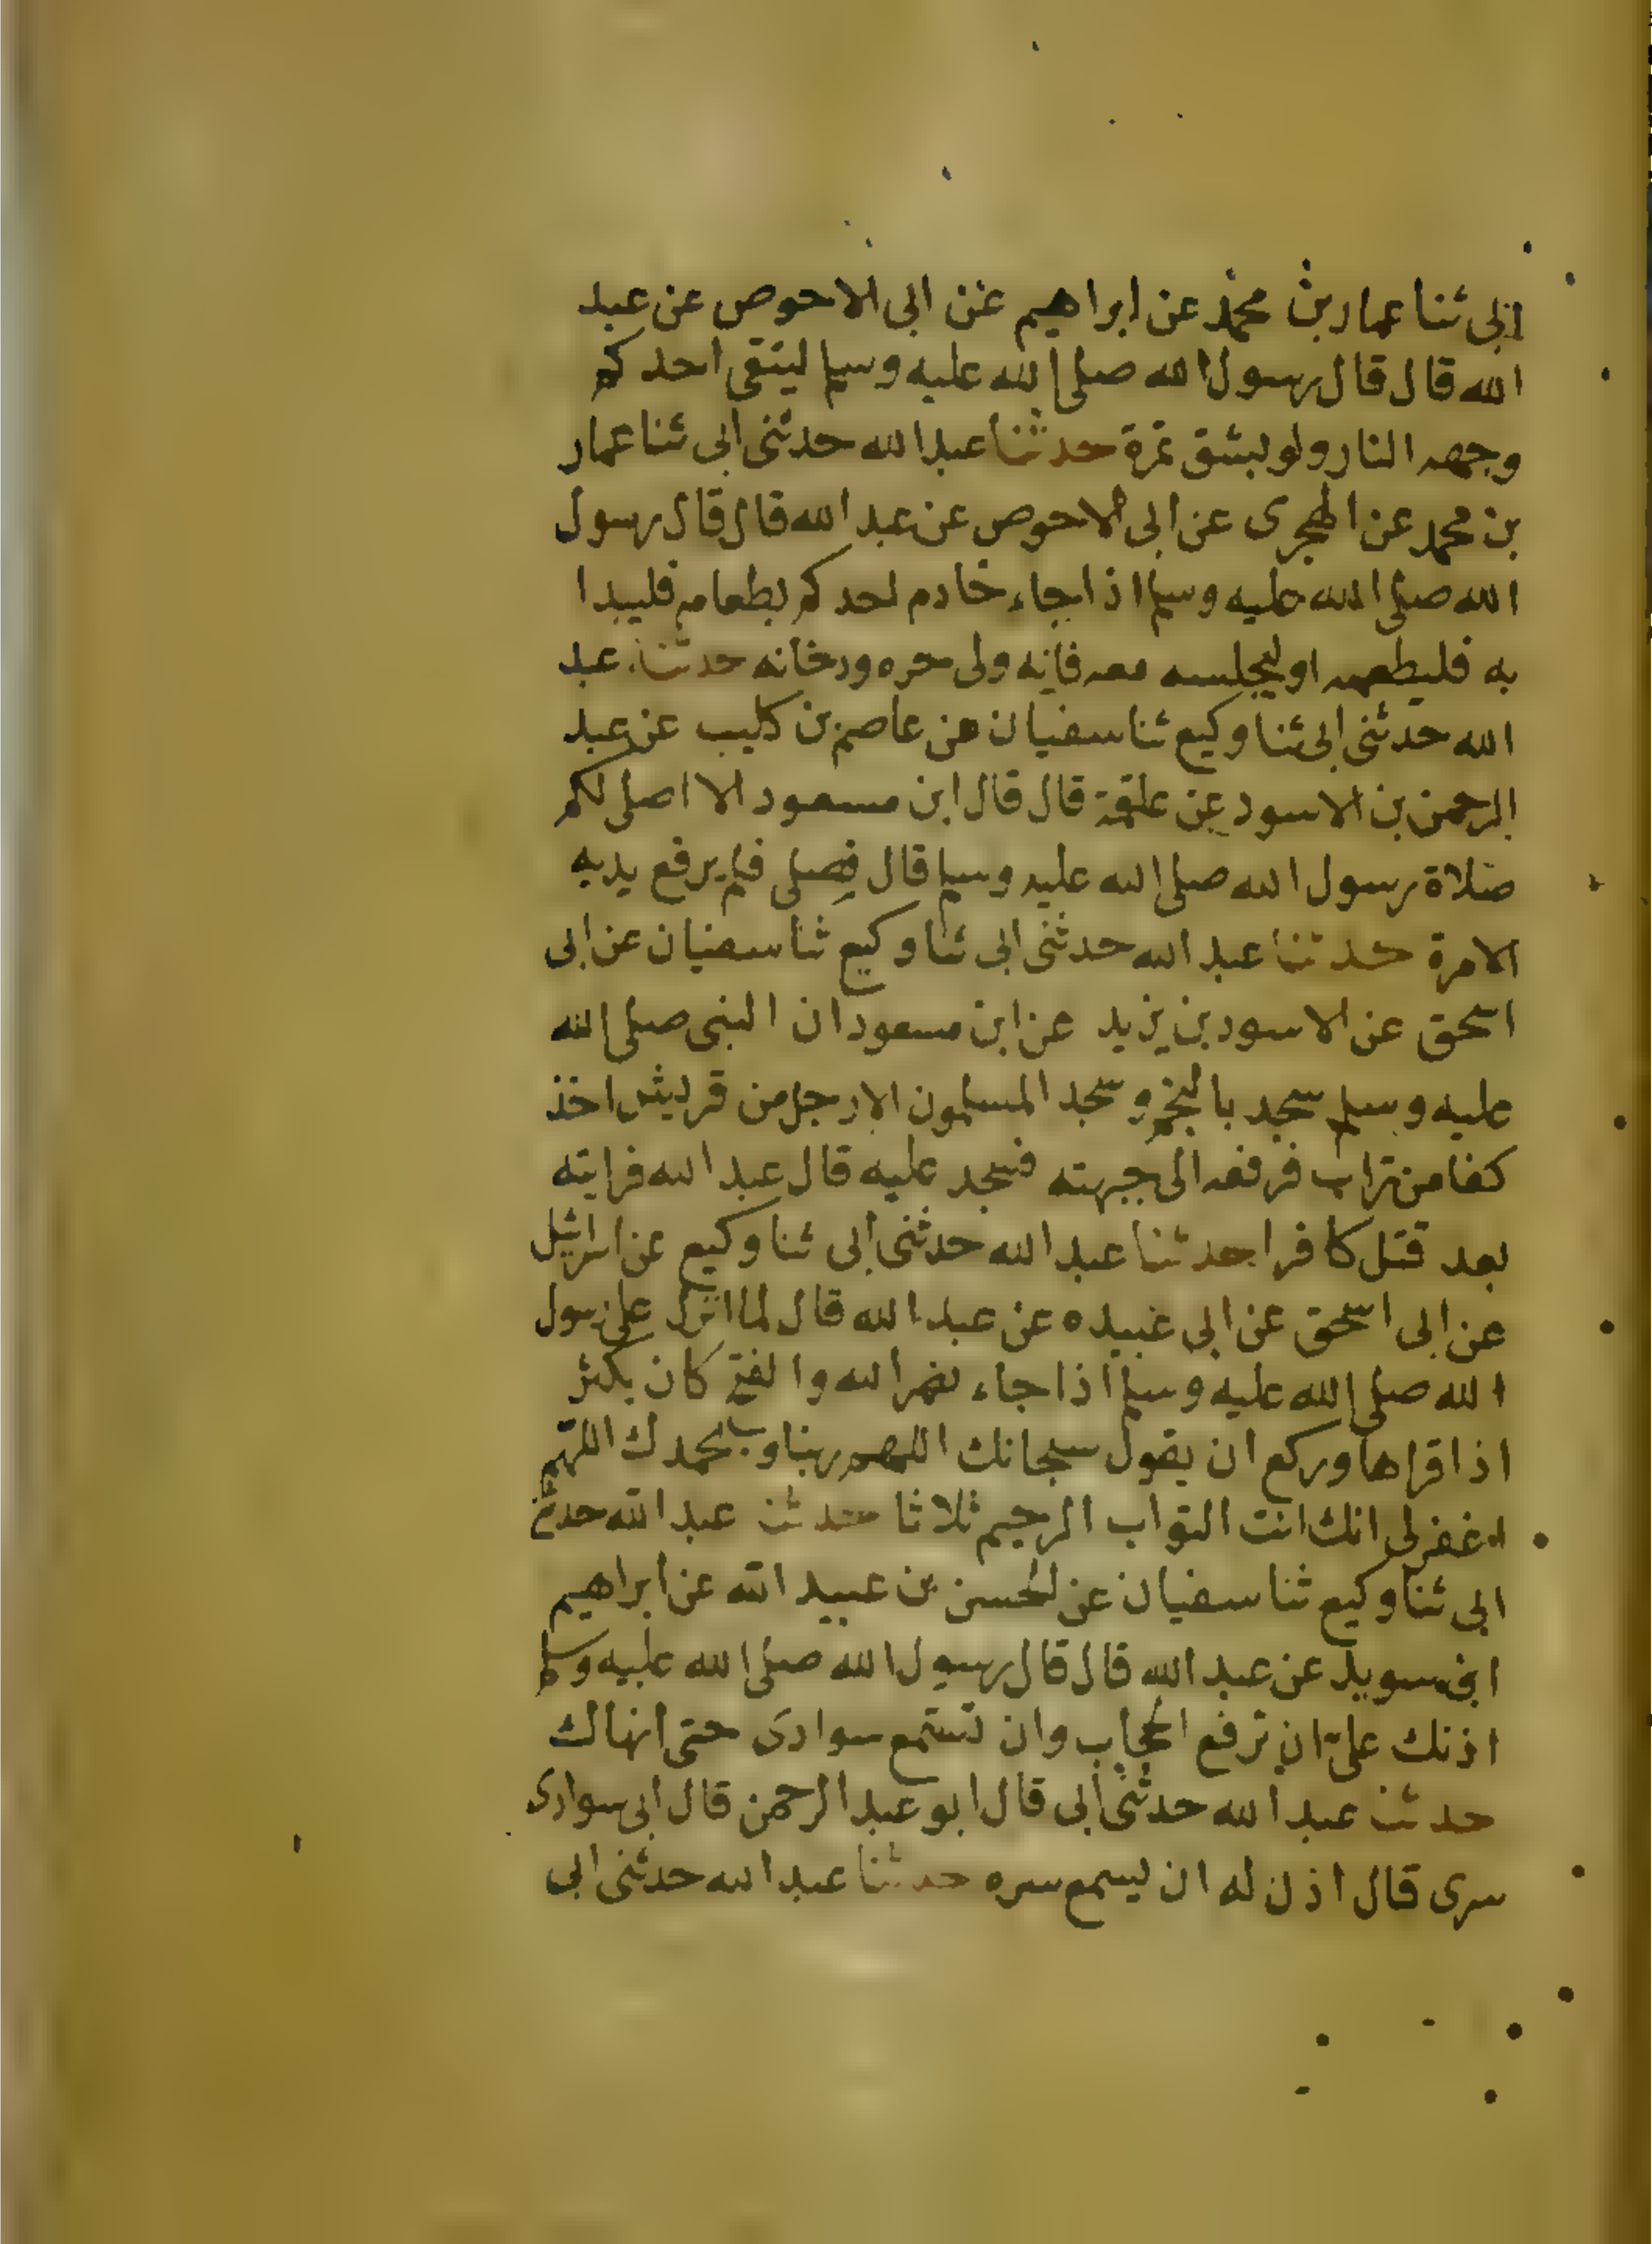 ابى ثنا عمار بن محمد عن ابراهيم عن ابى الاحوص عن عبد
الله قال قال رسول الله صلى الله عليه وسلم ليتقى احدكم
وجهه النار ولو بشق تمرة حدثنا عبد الله حدثنى ابى ثنا عمار
بن محمد عن الهجرى عن ابى الاحوص عن عبد الله قال قال رسول
الله صلى الله عليه وسلم اذا جاء خادم احدكم بطعامه فليبدا
به فليطعمه او ليجلسه معه فانه ولى حره ودخانه حدثنا عبد
الله حدثنى ابى ثنا وكيع ثنا سفيان عن عاصم بن كليب عن عبد
الرحمن بن الاسود عن علقمة قال قال ابن مسعود الا اصلى لكم
صلاة رسول الله صلى الله عليه وسلم قال فصلى فلم يرفع يديه
الا مرة حدثنا عبد الله حدثنى ابى ثنا وكيع ثنا سفيان عن ابى
اسحق عن الاسود بن يزيد عن ابن مسعود ان النبى صلى الله
عليه وسلم سجد بالنجم وسجد المسلمون الا رجل من قريش اخذ
كفا من تراب فرفعه الى جبهته فسجد عليه قال عبد الله فرايته
بعد قتل كافرا حدثنا عبد الله حدثنى ابى ثنا وكيع عن اسرائيل
عن ابى اسحق عن ابى عبيده عن عبد الله قال لما انزل على رسول
الله صلى الله عليه وسلم اذا جاء نصر الله والفتح كان يكثر
اذا قراها وركع ان يقول سبحانك اللهم ربنا وبحمدك اللهم
اغفر لى انك انت التواب الرحيم ثلاثا حدثنا عبد الله حدثنى
ابى ثنا وكيع ثنا سفيان عن الحسن بن عبيد الله عن ابراهيم
ابن سويد عن عبد الله قال قال رسول الله صلى الله عليه وسلم
اذنك على ان ترفع الحجاب وان تستمع سوادى حتى انهاك
حدثنا عبد الله حدثنى ابى قال ابو عبد الرحمن قال ابى سوادى
سرى قال اذن له ان يسمع سره حدثنا عبد الله حدثنى ابى